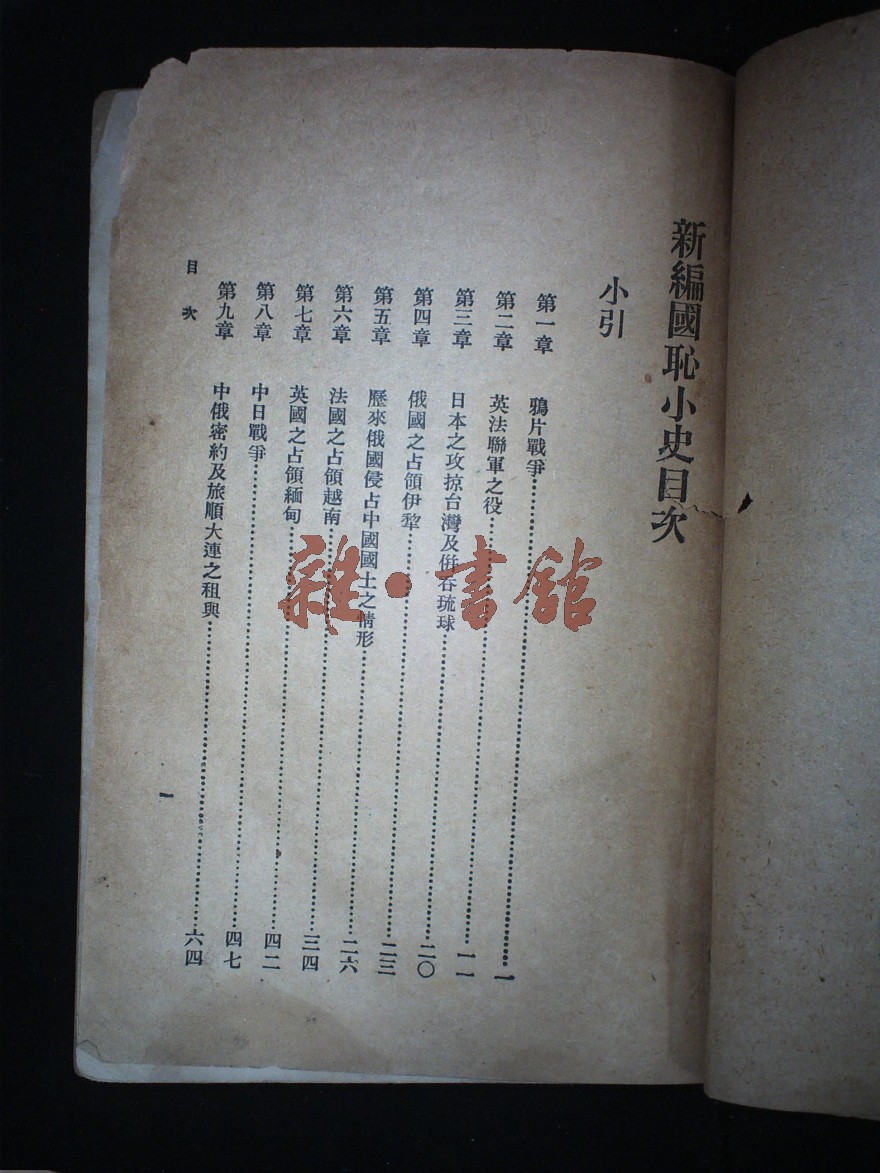 新編國恥小史目次
小引
第一章 鴉片戰爭……一
第二章 英法聯軍之役……一一
第三章 日本之攻掠台灣及併吞琉球……二〇
第四章 俄國之占領伊犂……二三
第五章 歷來俄國侵占中國國土之情形……二六
第六章 法國之占領越南……三四
第七章 英國之占領緬甸……四二
第八章 中日戰爭……四七
第九章 中俄密約及旅順大連之租與……六四
目次
一
雜·書館